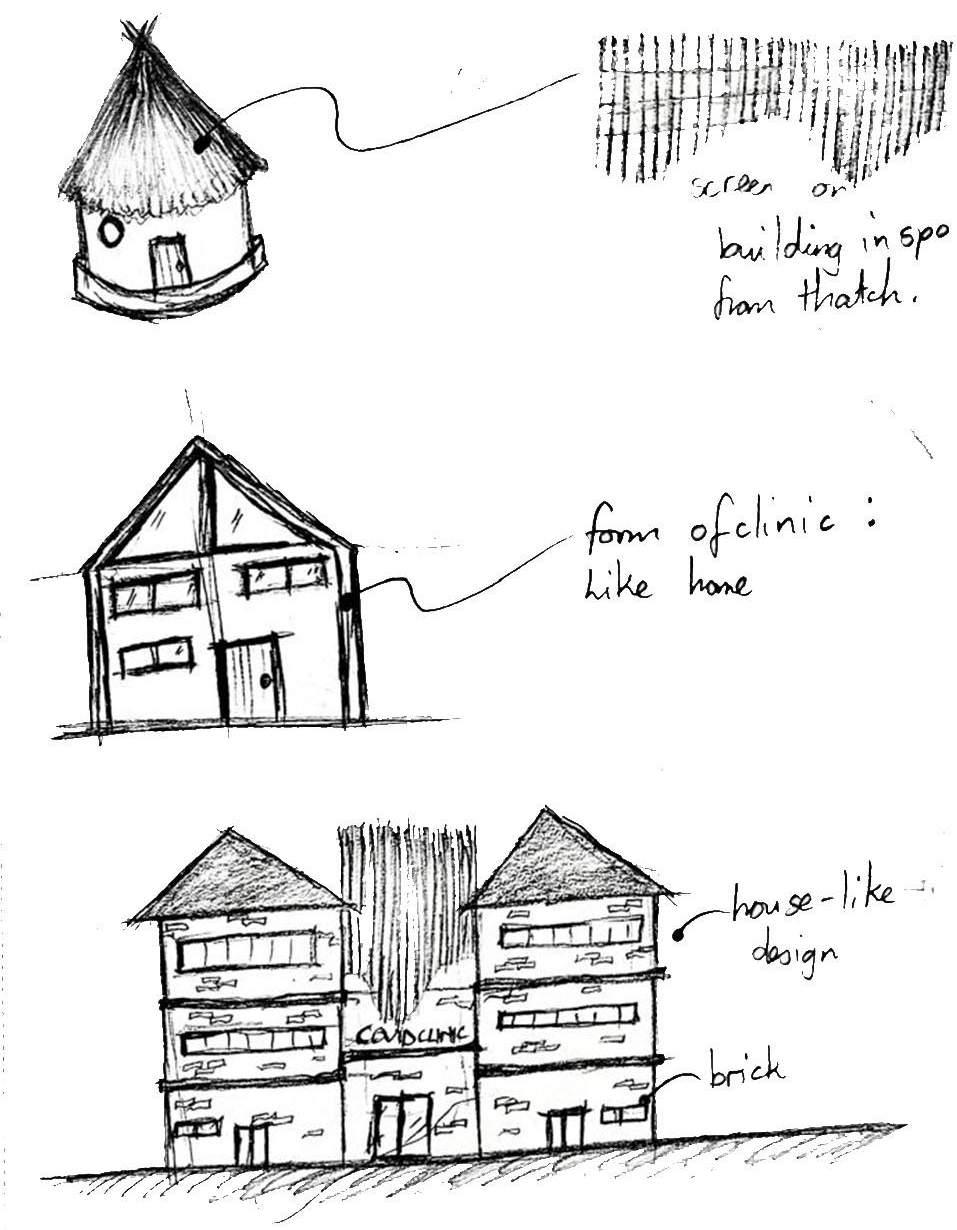 screen or
building inspo
from thatch.
form of clinic :
Like home
COVID CLINIC
house-like
design
brick